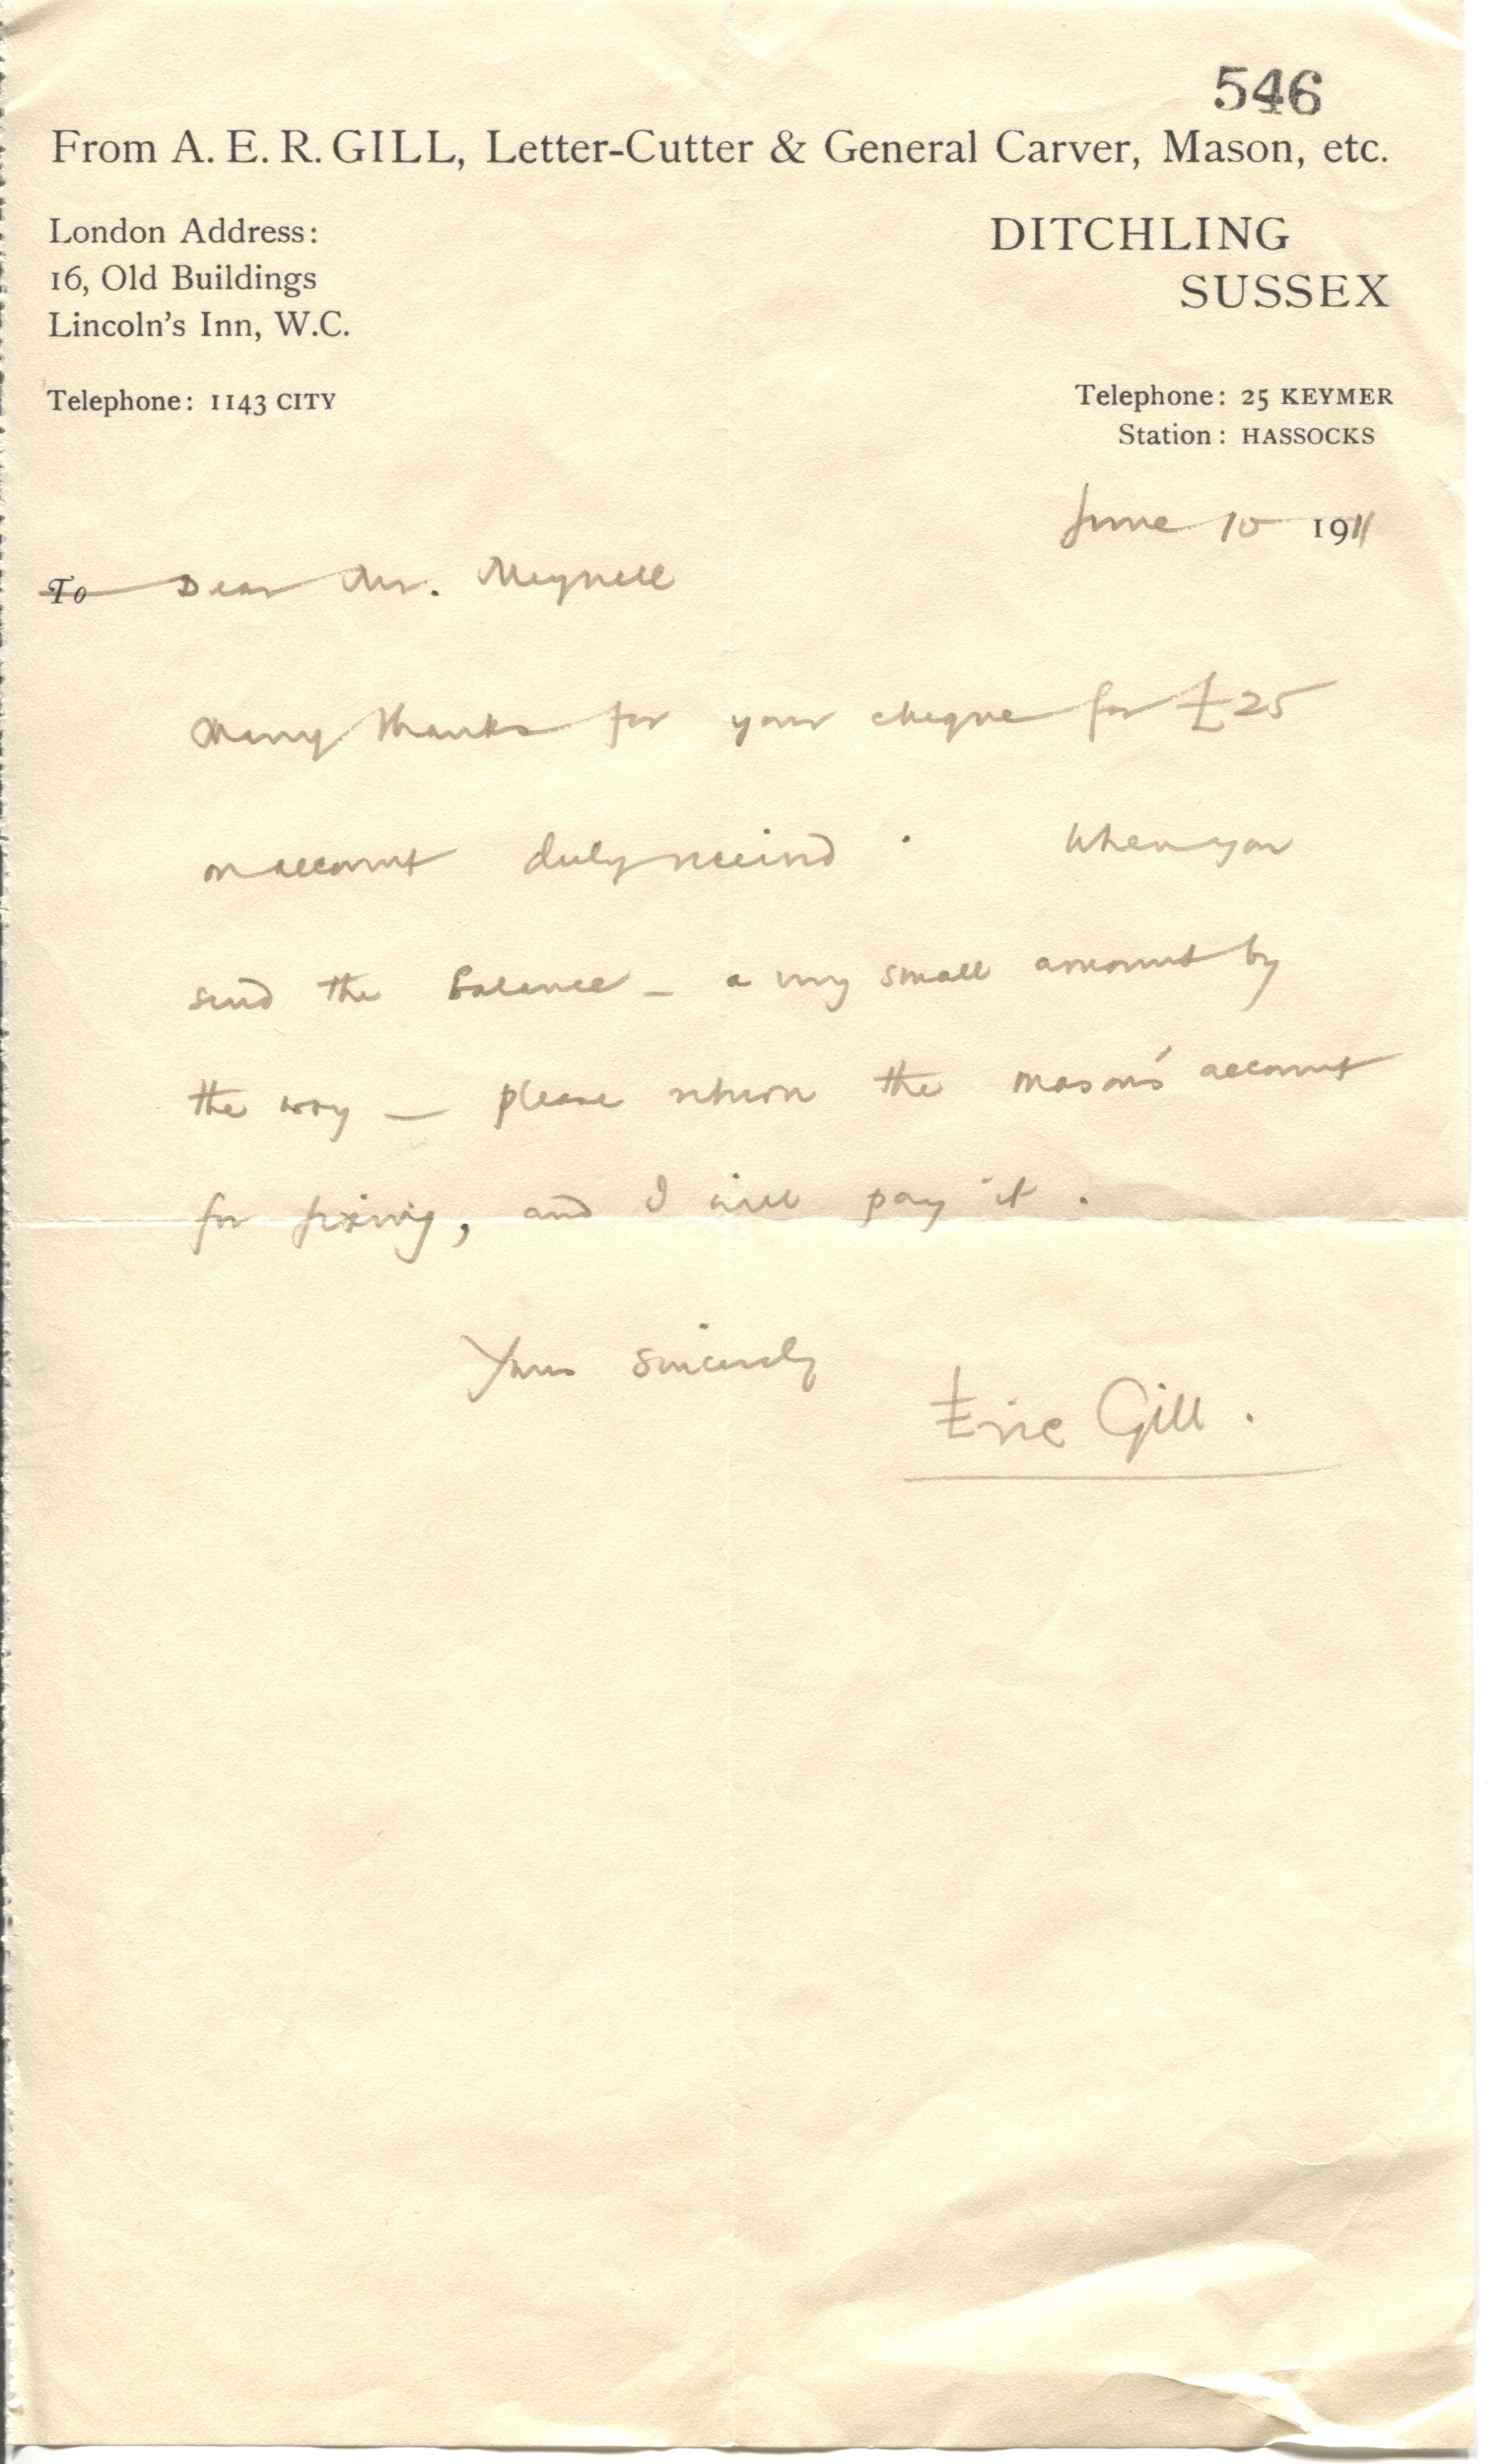 546
From A. E. R. GILL, Letter-Cutter & General Carver, Mason, etc.
London Address:
16, Old Buildings
Lincoln's Inn, W.C.
Telephone: 1143 CITY
DITCHLING
SUSSEX
Telephone: 25 KEYMER
Station: HASSOCKS
June 10 1911
To Dear Mr. Meynell
Many thanks for your cheque for £25
on account duly received. When you
send the balance – a very small amount by
the way – please return the mason's account
for fixing, and I will pay it.
Yours sincerely
Eric Gill.